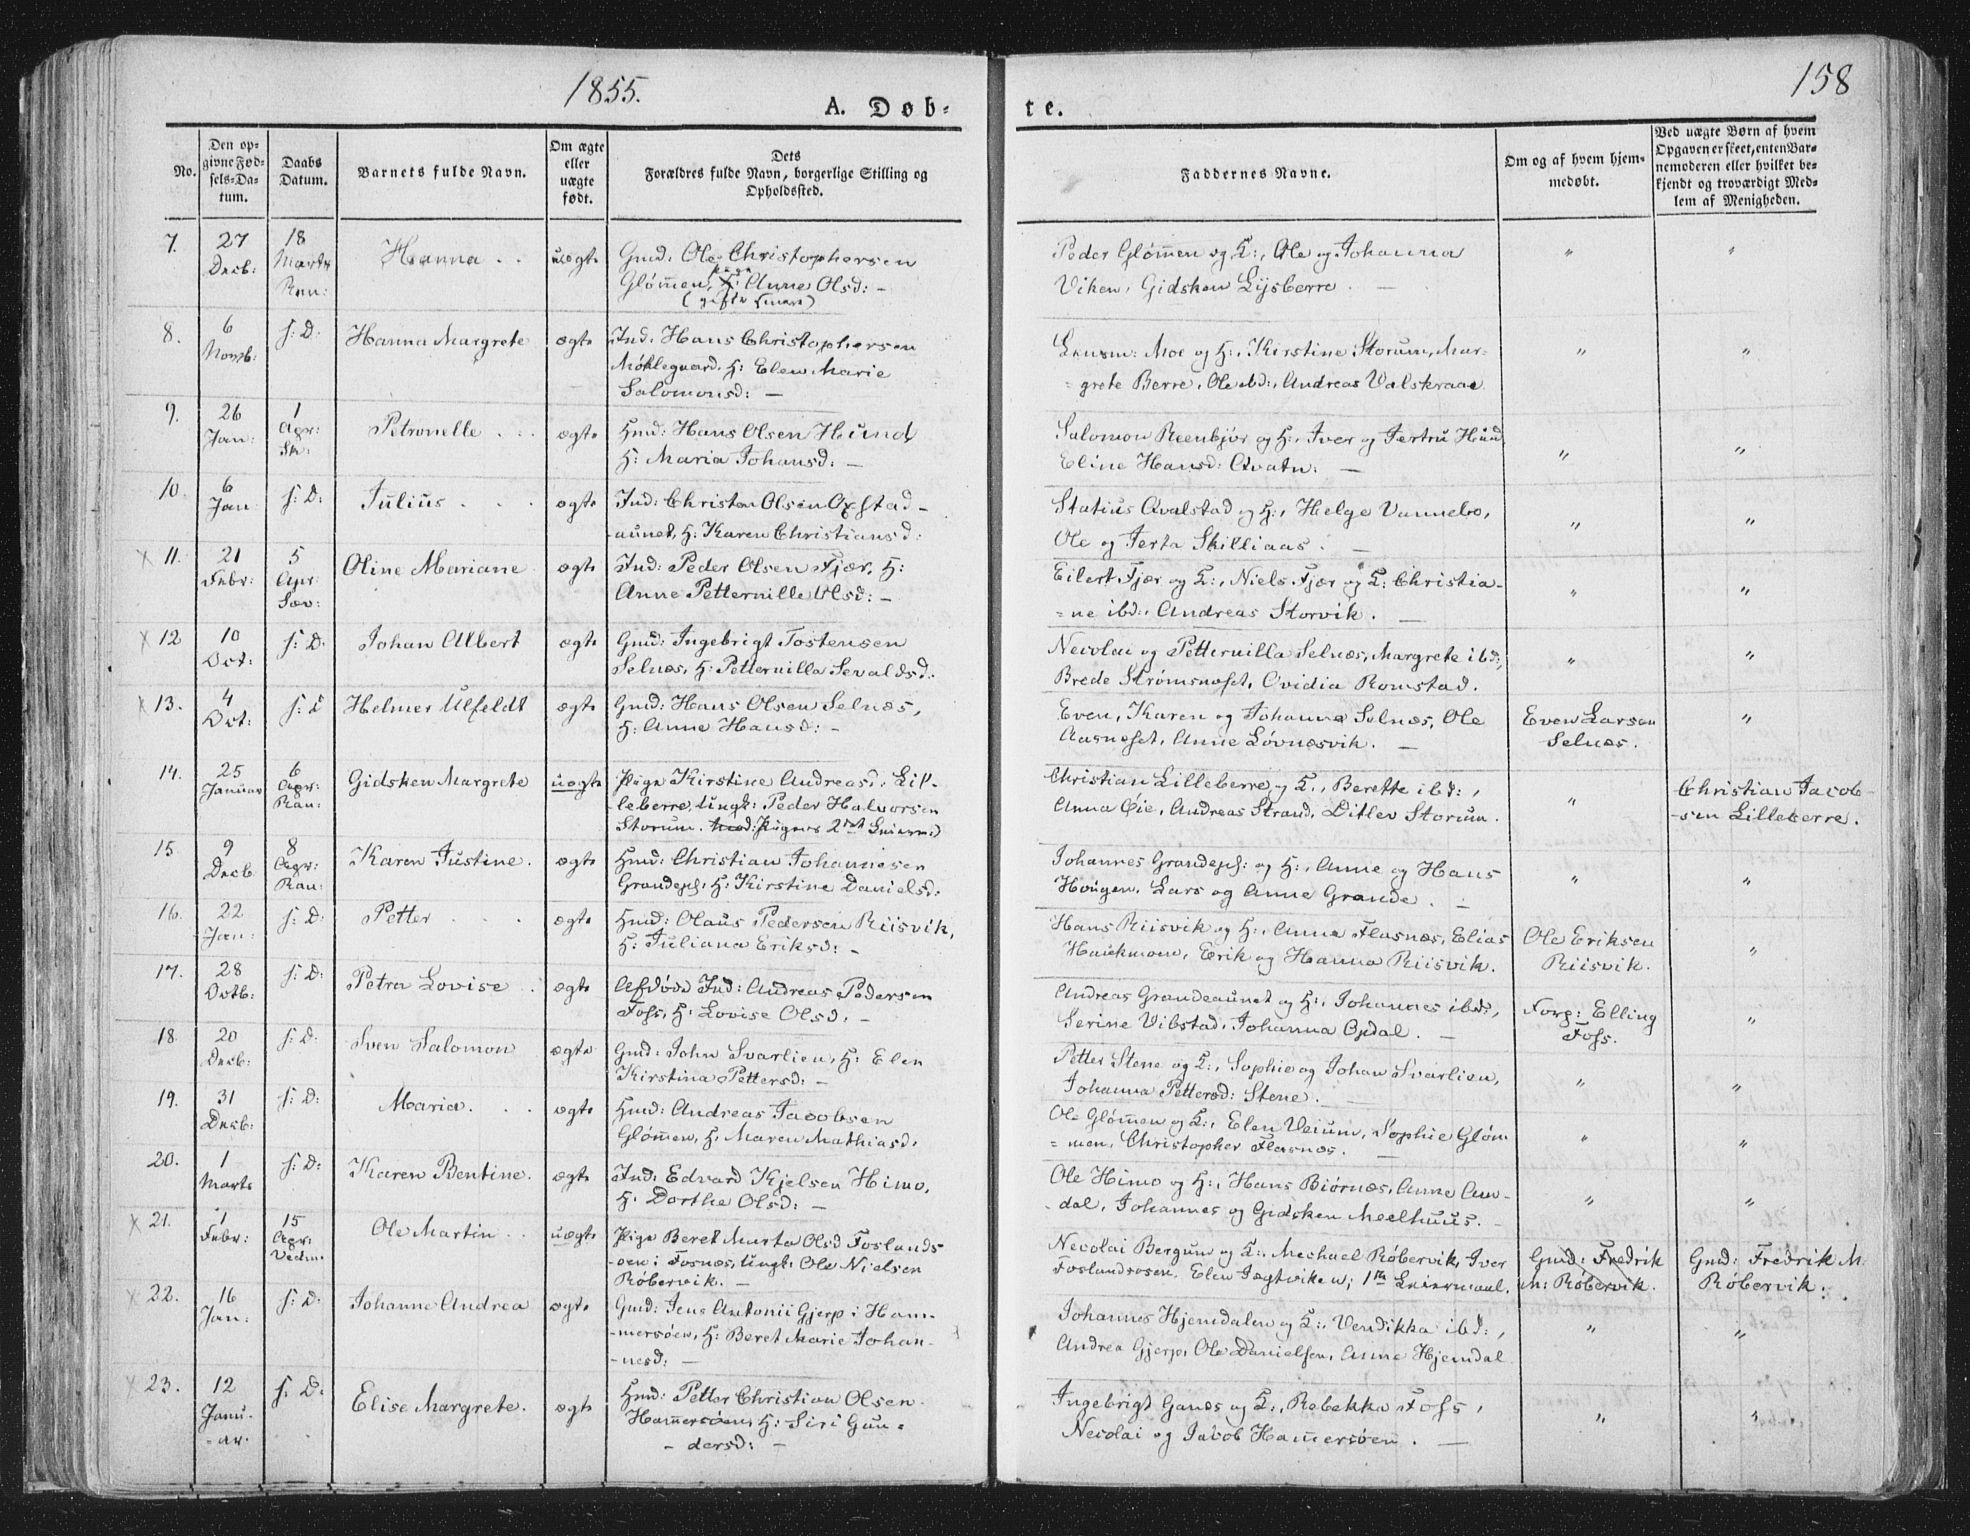 1855.
158
A. Døb-
te.
No.
Den op-
givne Fød-
sels-Da-
tum.
Daabs
Datum.
Barnets fulde Navn.
Om ægte
eller
uægte
født.
Dets
Forældres fulde Navn, borgerlige Stilling og
Opholdssted.
Faddernes Navne.
Om og af hvem hjem-
medøbt.
Ved uægte Børn af hvem
Opgaven er skeet, enten Bar-
nemoderen eller hvilket be-
kjendt og troværdigt Med-
lem af Menigheden.
7. 27 Decb: 18 Marts Ran: Hanna uægte
Gmd: Ole Christophersen
Glømen, Anne Olsd: -
Peder Glømen og H:, Ole og Johanna
Viken, Gidsken Lysberre. -
8. 6 Novb: s: D: Hanna Margrete ægte
Ind: Hans Christophersen
Møklegaard, H: Elen Marie
Salomonsd: -
Lensm: Moe og H:, Kirstine Storum, Mar-
grete Berre, Ole ibd:, Andreas Valskraae
9. 26 Jan: 1 Apr: Sk: Petronelle ægte
Hmd: Hans Olsen Hund
H: Maria Johansd: -
Salomon Reenbjør og H:, Iver og Jertru Hund
Eline Hansd: Qvatn: -
10. 6 Jan s: D: Julius ægte
Ind: Christen Olsen Oxstad-
-aunet, H: Karen Christiansd:
Statius Qvalstad og H:, Helge Vannebo,
Ole og Jerta Skilliaas. -
11. 21 Febr: 5 Apr: Sæv: Oline Mariane ægte
Ind: Peder Olsen Fjær, H:
Anne Petternille Olsd: -
Eilert Fjær og H:, Niels Fjær og H: Christia-
-ne ibd:, Andreas Storvik. -
12 10 Oct: s: D: Johan Albert ægte
Gmd: Ingebrigt Tostensen
Selnæs, H: Petternilla Sevaldsd.
Nicolai og Petternilla Selnæs, Margrete ibd:,
Brede Strømsnæset, Ovidia Romstad.
13. 4 Oct: s: D Helmer Ulfeldt ægte
Gmd: Hans Olsen Selnæs,
H: Anne Hansd: -
Even, Karen og Johanna Selnæs, Ole
Aasnæset, Anne Løvnæsvik. -
Even Larsen
Selnæs.
14. 25 Januar 6 Apr: Ran: Gidsken Margrete uægte
Pige Kirstine Andreasd: Lil-
-leberre, Ungk: Peder Halvorsen
Storum. Pigens 2det Leierm:
Christian Lilleberre og H:, Berette ibd:,
Anna Øie, Andreas Strand, Ditlev Storum.
Christian Jacob-
-sen Lilleberre.
15. 9 Decb 8 Apr: Ran: Karen Justine. ægte
Hmd: Christian Johannesen
Grandepl: H: Kirstine Danielsd:
Johannes Grandepl: og H:, Anne og Hans
Hougen, Lars og Anne Grande. -
16. 22 Jan: s: D: Petter ægte
Hmd: Olaus Pedersen Riisvik,
H: Juliana Eriksd: -
Hans Riisvik og H:, Anne Flasnæs, Elias
Haukmoen, Erik og Hanna Riisvik.
Ole Eriksen
Riisvik.
17. 28 Octb: s: D: Petra Lovise ægte
Afdøde Ind: Andreas Pedersen
Foss, H: Lovise Olsd. -
Andreas Grandeaunet og H:, Johannes ibd:,
Serine Vibstad, Johanna Opdal. -
Forp: Elling
Foss.
18. 20 Decb: s: D: Sven Salomon ægte
Gmd: John Svarlien, H: Elen
Kirstina Pettersd: -
Petter Stene og H:, Sophie og Johan Svarlien,
Johanna Pettersd: Stene. -
19. 31 Decb: s: D: Maria. ægte
Hmd: Andreas Jacobsen
Glømen, H. Maren Mathiasd.
Ole Glømen og H:, Elen Veium, Sophie Gløm-
-men, Christopher Flasnæs. -
20. 1 Marts s: D: Karen Bentine. ægte
Ind: Edvard Kjelsen Himo,
H: Dorthe Olsd: -
Ole Himo og H:, Hans Biørnæs, Anne Am-
-dal, Johannes og Gidsken Meelhuus. -
21. 1 Febr: 15 Apr: Vedm: Ole Martin uægte
Pige Beret Marta Olsd Foslands
oen i Fosnæs, Ungk: Ole Nielsen
Røbervik. -
Nicolai Bergum og H:, Mechael Røbervik, Iver
Foslandsosen, Elen Jægtviken; 1ste Leiermaal.
Gmd: Fredrik
M: Røbervik.
Gmd: Fredrik M:
Røbervik.
22. 16 Jan: s: D: Johanne Andrea ægte
Gmd: Jens Antonii Gjerp i Ham-
-mersøen, H: Beret Marie Johan-
-nesd: -
Johannes Hjemdalen og H:, Vendikka ibd:,
Andrea Gjerp, Ole Danielsen, Anne Hjemdal
23. 12 Janu-
-ar. s: D: Elise Margrete. ægte
Hmd: Petter Christian Olsen
Hamersøen, H: Siri Gun-
-dersd: -
Ingebrigt Ganes og H:, Rebekka Foss,
Nicolai og Jacob Hamersøen. -